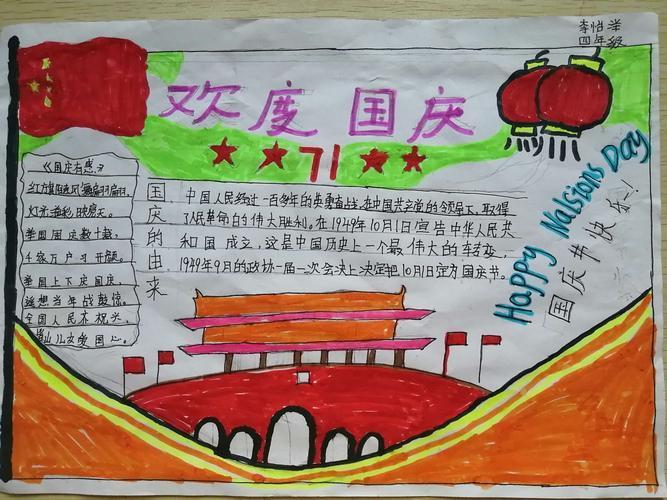 李怡洋
四年级
欢度国庆
71
《国庆有感》
红旗阵阵风飘扇扇,
灯光海彩映窟天。
举国同庆歌十载,
千家万户习开颜。
举国上下庆国庆,
遥想当年战鼓惊。
全国人民齐祝兴,
儿女爱国心。
国庆的由来
中国人民经过一百多年的英勇奋战,在中国共产党的领导下,取得
了人民革命的伟大胜利。在1949年10月1日宣告中华人民共
和国成立,这是中国历史上一个最伟大的转变,
1949年9月的政协一届一次会决上决定把10月1日定为国庆节。
Happy Nalsions Day
国庆节快乐!